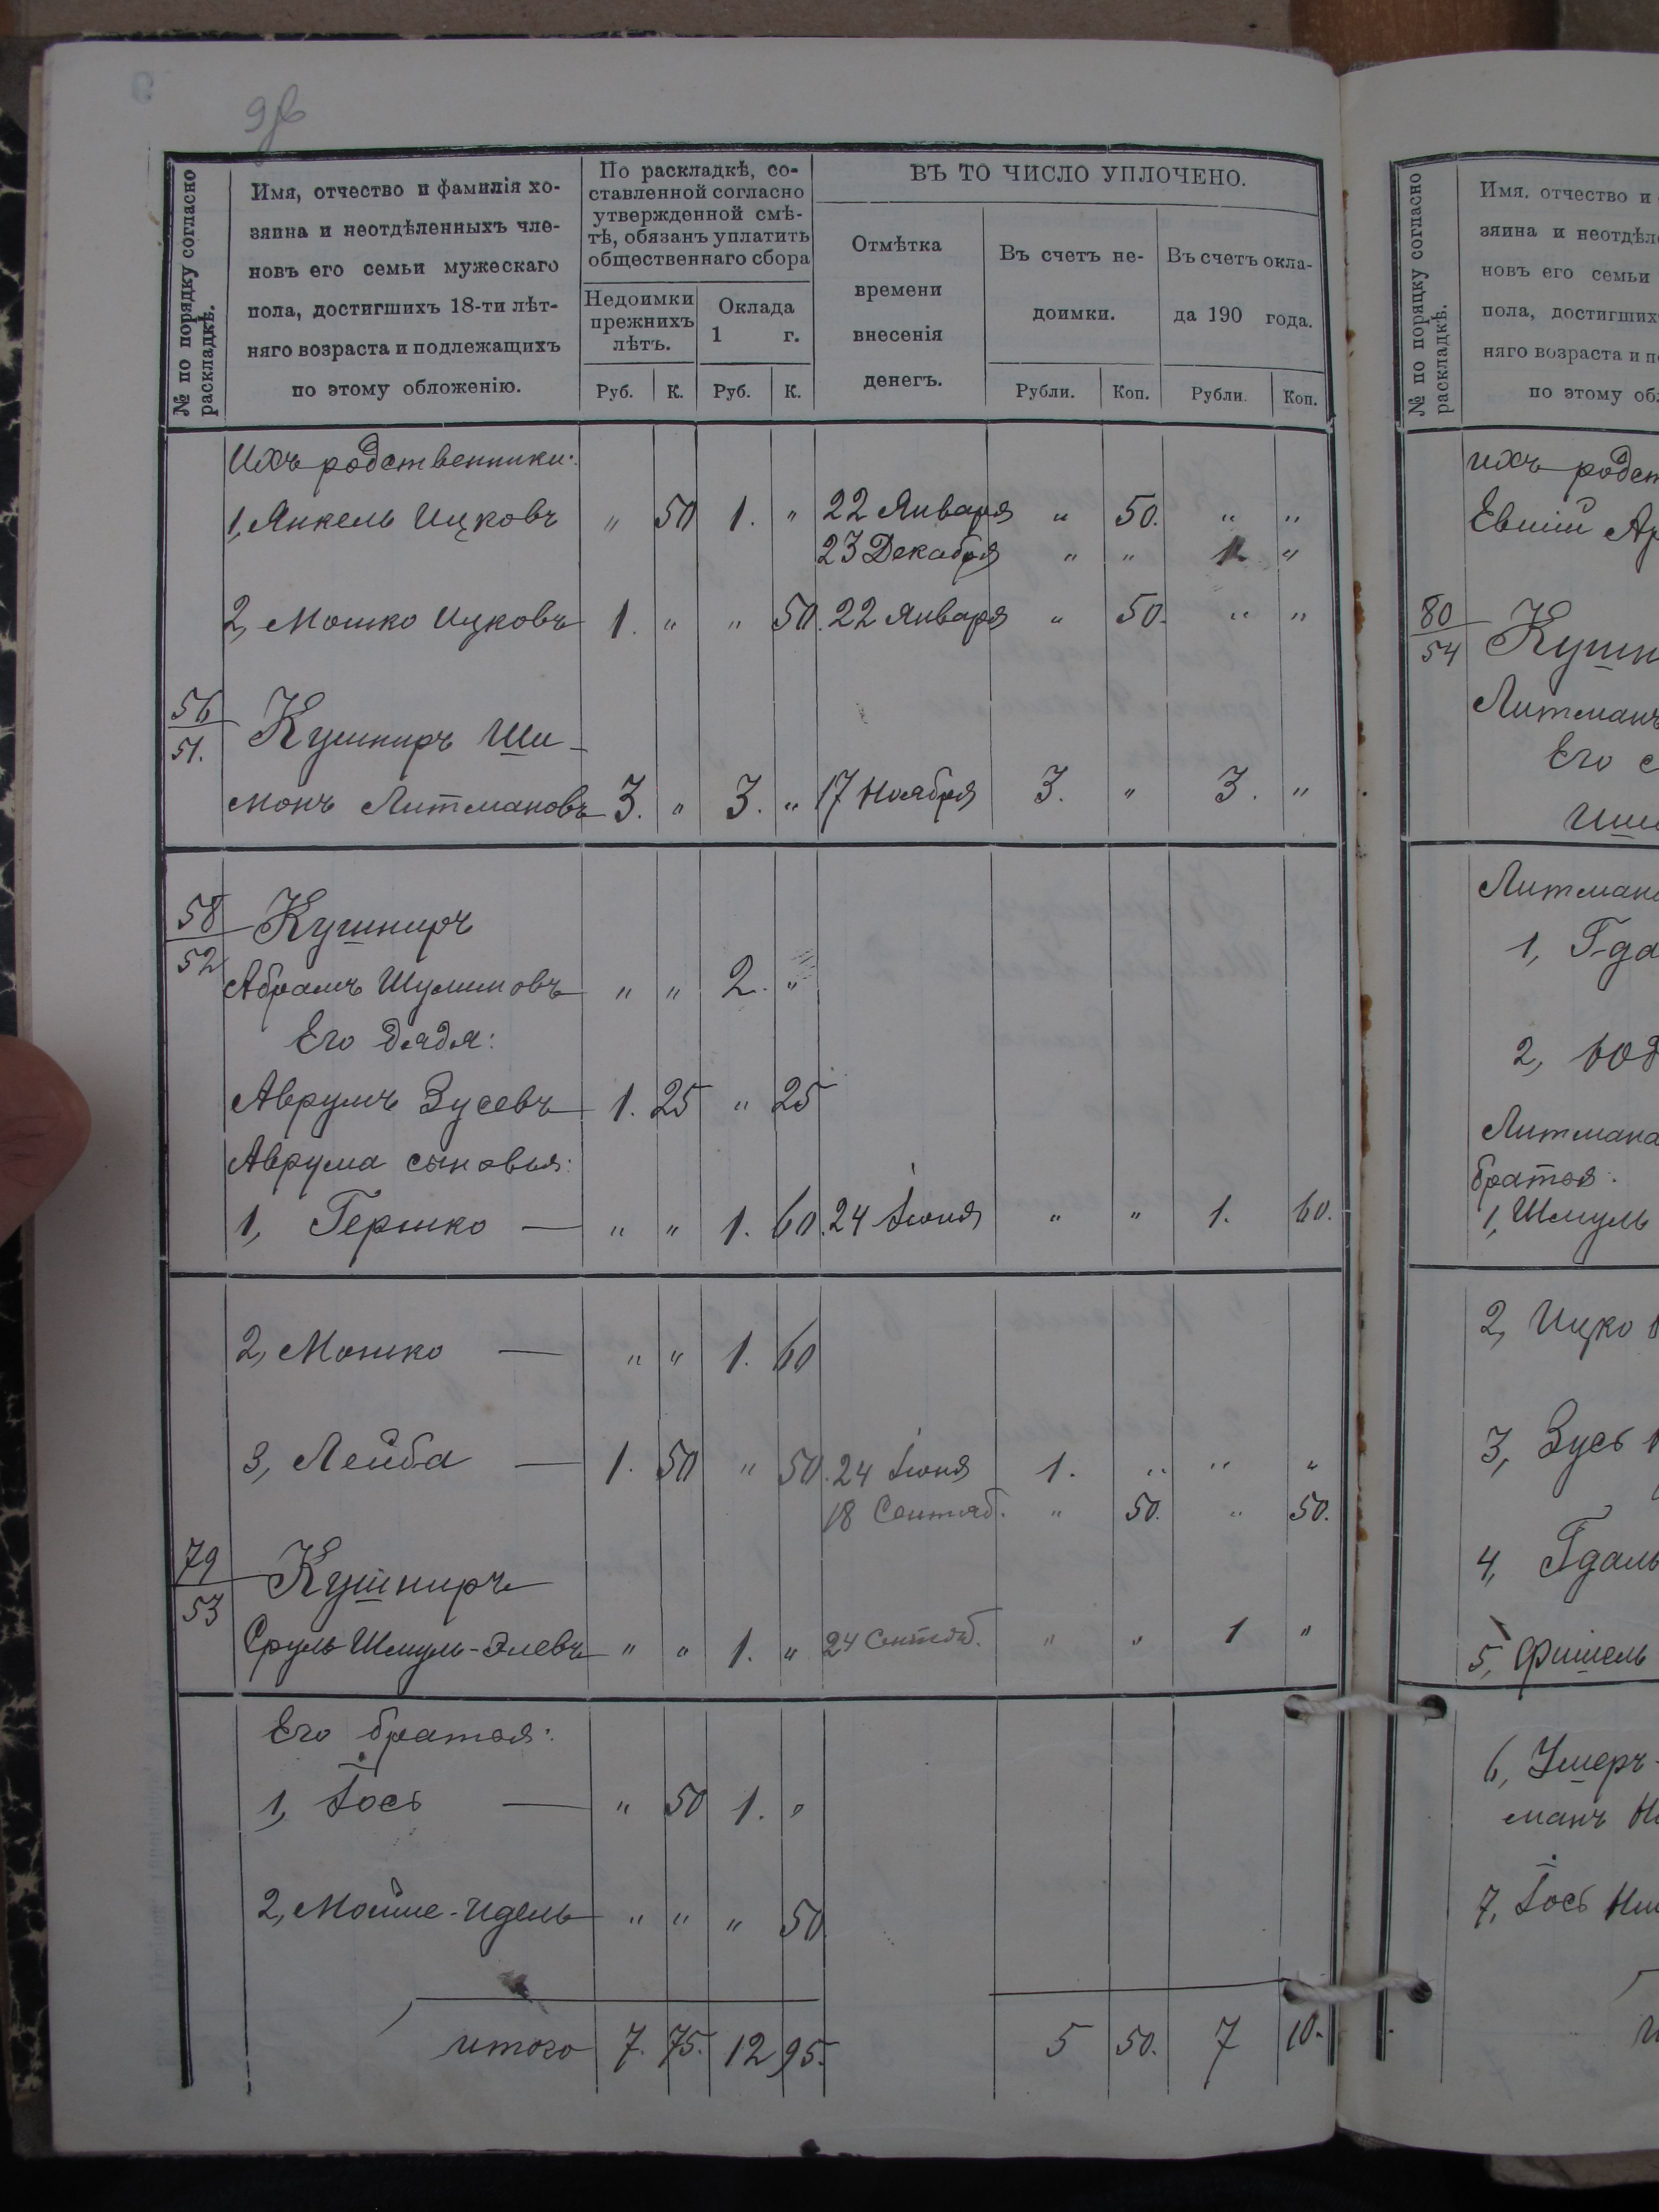 9 об
№ по порядку согласно раскладкѣ.
Имя, отчество и фамилія хо-
зяина и неотдѣленныхъ чле-
новъ его семьи мужескаго
пола, достигшихъ 18-ти лѣт-
няго возраста и подлежащихъ
по этому обложенію.
По раскладкѣ, со-
ставленной согласно
утвержденной смѣ-
тѣ, обязанъ уплатить
общественнаго сбора
Недоимки прежнихъ лѣтъ.
Оклада 1 г.
ВЪ ТО ЧИСЛО УПЛОЧЕНО.
Отмѣтка времени внесенія денегъ.
Въ счетъ не-
доимки.
Въ счетъ окла-
да 190 года.
Руб. К. Руб. К. Рубли. Коп. Рубли. Коп.
Ихъ родственники:
1, Янкель Ицковъ " 50 1. " 22 Января " 50. " "
23 Декабря " " 1 "
2, Мошко Ицковъ 1. " " 50. 22 Января " 50. " "
56/51. Кушниръ Ши-
монъ Литмановъ 3. " 3. " 17 Ноября 3. " 3. "
58/52 Кушниръ
Абрамъ Шулимовъ " " 2. "
Его дядя:
Аврумъ Зусевъ 1. 25 " 25
Аврума сыновья:
1, Гершко — " " 1. 60. 24 Іюня " " 1. 60.
2, Мошко — " " 1. 60
3, Лейба — 1. 50 " 50. 24 Іюня 1. " " "
18 Сентяб. " 50. " 50.
79/53 Кушниръ
Сруль Шмуль-Элевъ " " 1. " 24 Сентяб. " " 1 "
Его братья:
1, Іось — " 50 1. "
2, Мойше-Идель " " " 50
итого 7. 75. 12 95. 5 50. 7 10.
№ по порядку согласно раскладкѣ.
Имя. отчество и
зяина и неотдѣл
новъ его семьи
пола, достигших
няго возраста и п
по этому об
ихъ родст
80/54 Кушн
Литманъ
Его с
Литман
1, Гда
2,
Литмана
братья:
1, Шмуль
2, Ицко
3, Зусь
4, Гдаль
5, Фишель
6, Ушеръ-
манъ
7, Іось